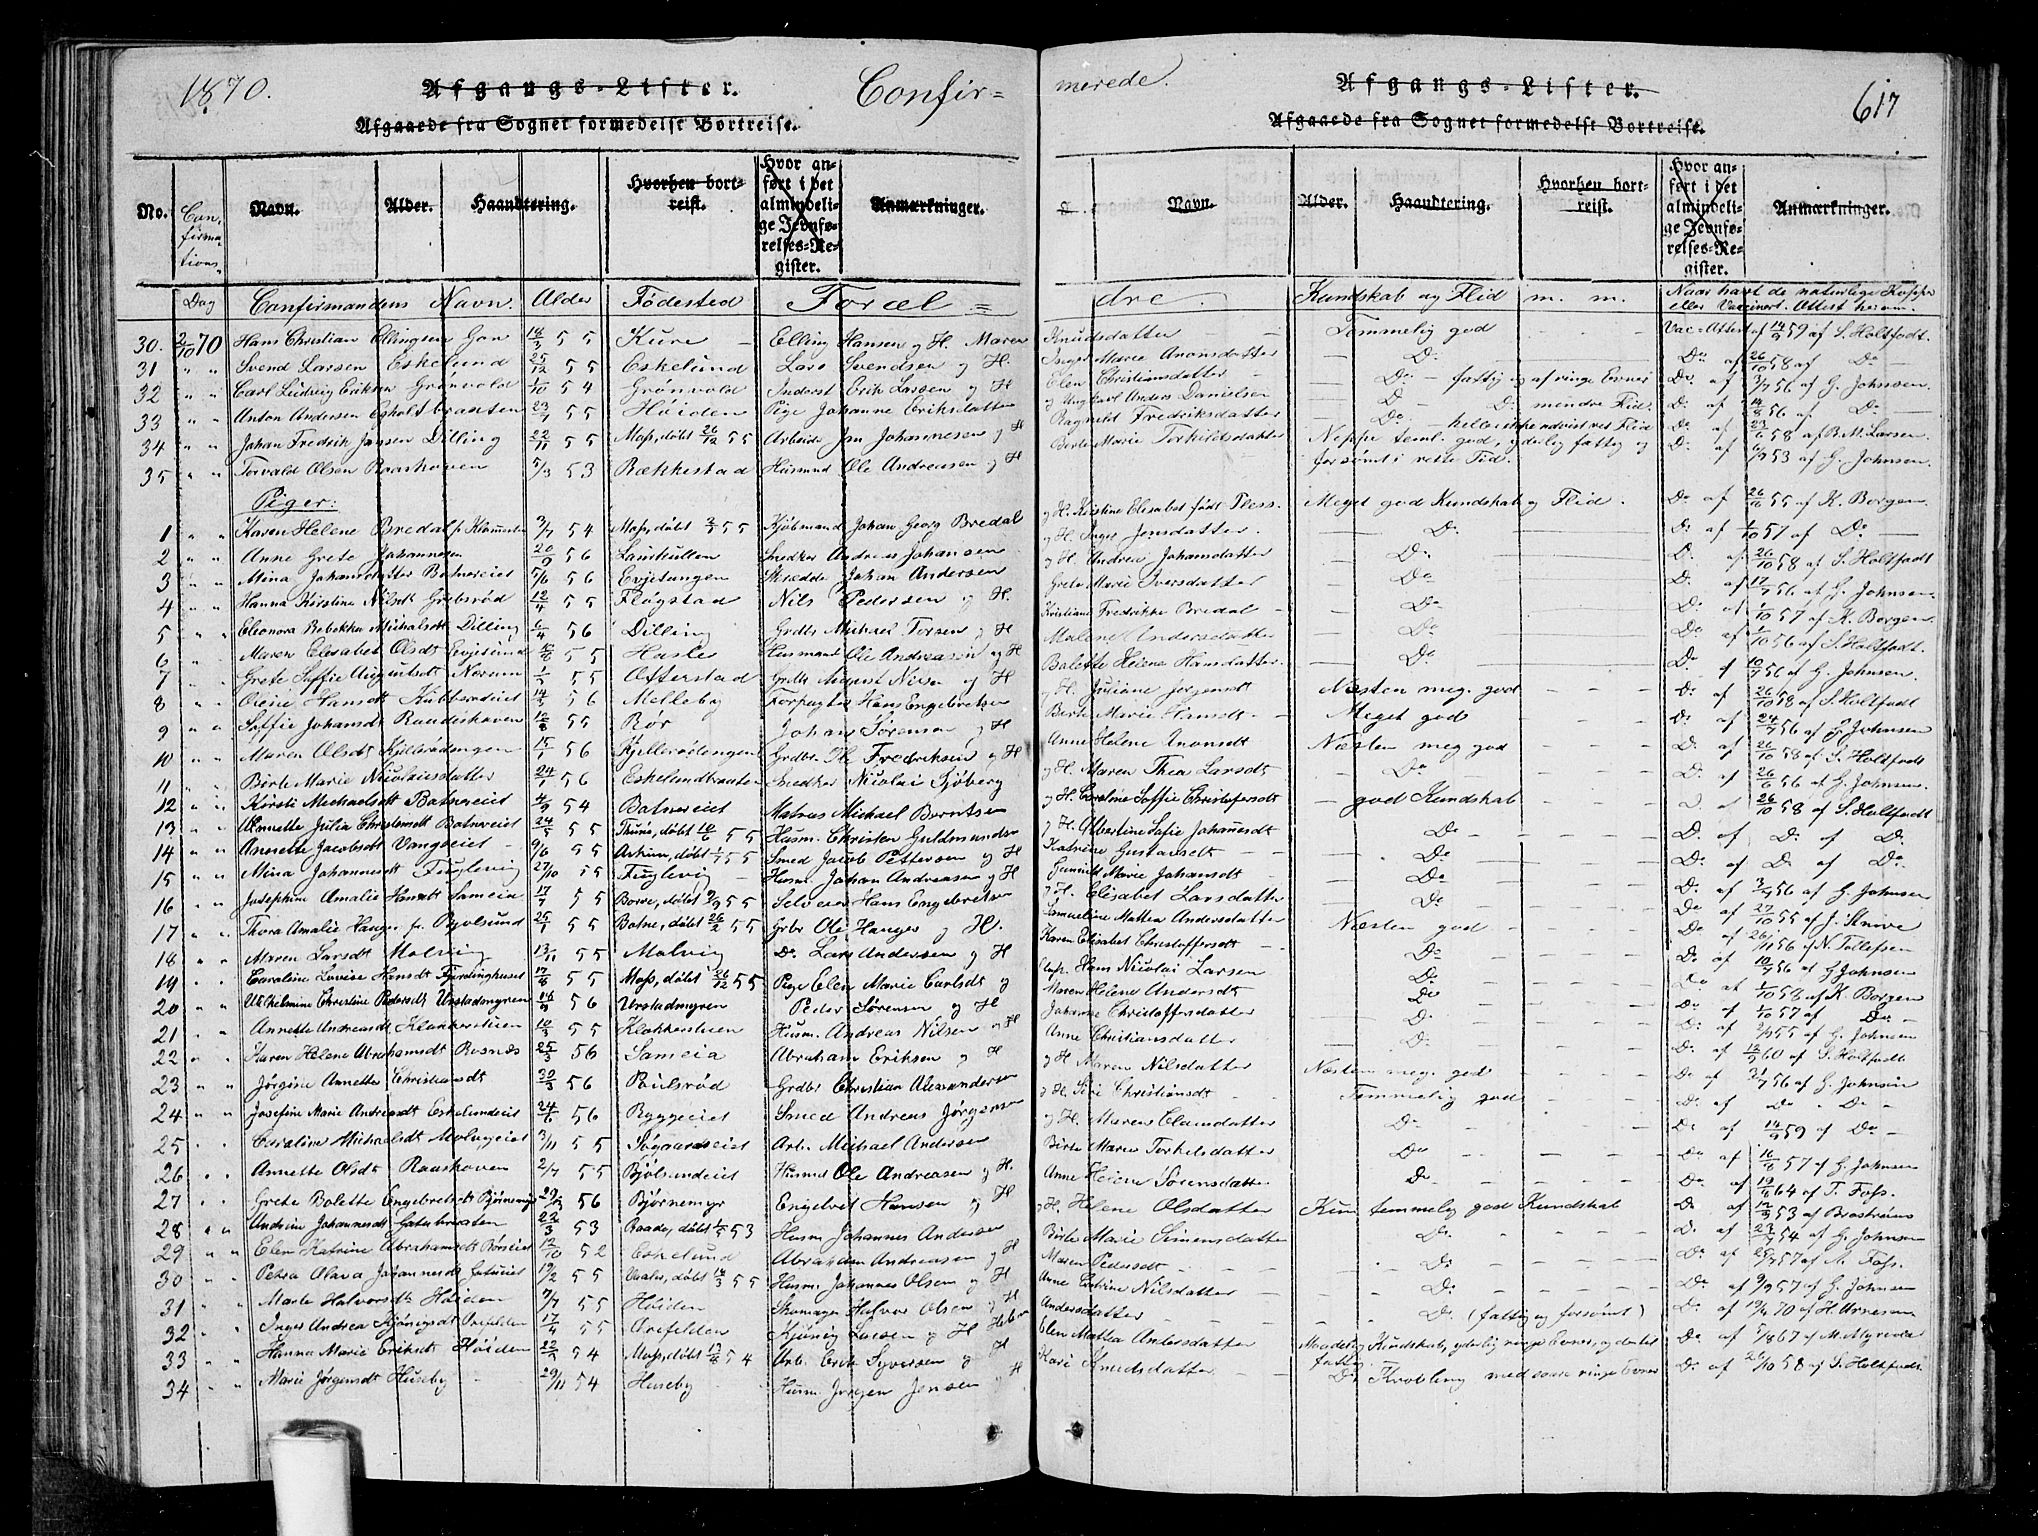 1870.
Afgangs-Lister.
Confir=
Afgaaede fra Sognet formedelst Bortreise.
merede.
Afgangs-Lister.
617
Afgaaede fra Sognet formedelst Bortreise.
No. Confirmations- Dag Navn. Alder. Haandtering. Hvorhen bortreist. Hvor anført i det almindelige Jevnførelses-Register. Anmærkninger.
Navn. Alder. Haandtering. Hvorhen bortreist. Hvor anført i det almindelige Jevnførelses-Register. Anmærkninger.
Confirmandens Navn. Alder Fødested Foræl= dre. Kundskab og Flid m. m. Naar havt de naturlige Kopper eller Vaccinert. Attest herom.
30. 2/10 70 Hans Christian Ellingsen Gon 18/3 55 Kure Elling Hansen og H. Maren Knudsdatter Temmelig god Vac-Attest af 14/9 59 af S. Holtfodt.
31 " " Svend Larsen Eskelund 25/12 55 Eskelund Lars Svendsen og H. Inger Marie Aronsdatter Do Do af 26/10 58 af Do
32 " " Carl Ludvig Eriksen Grønvold 1/10 54 Grønvold Inderst Erik Larsen og H Elen Christiansdatter Do fattig og af ringe Evner Do af 3/7 56 af G. Johnsen.
33 " " Anton Andersen Egholtbraaten 23/7 55 Høiden Pige Johanne Eriksdatter og Ungkarl Anders Danielsen D. mindre Flid. D. af 14/8 56 af Do
34 " " Johan Fredrik Jansen Dilling 22/11 55 Moss, døbt 26/12 55 Arbeids Jan Johannesen og H Ragnild Fredriksdatter Do Do af 23/6 58 af B. M. Larsen.
35 " " Torvald Olsen Raashoven 5/3 53 Rækkestad Husmand Ole Andreasen og H Berte Marie Torkildsdatter Neppe teml. god, yderlig fattig og forsømt i reste Tid. D. af 53 af G. Johnsen.
Piger:
1 " " Karen Helene Bredal 3/7 54 Moss, døbt 55 Kjøbmand Johan Georg Bredal og H. Kristine Elisabet født Fless. Meget god Kundskab og Flid. Do af 26/6 55 af K. Borgen
2 " " Anne Grete Johannesen 20/9 56 Laukullen Snedker Andreas Johansen og H. Inger Jensdatter D. D. af 1/10 57 af Do
3 " " Mina Johansdatter Botnereiet 5/6 56 Evjetangen Skrædder Johan Andersen og H. Andrea Johansdatter Do D. af 26/10 58 af S. Holtfodt
4 " " Hanna Kirstine Nilsdt Grebsrød 12/4 55 Fløgstad Nils Pedersen og H. Grete Marie Iversdatter Do D. af 17/7 56 af G. Johnsen
5 " " Eleonora Rebekka Michalsdt Dilling 6/4 56 Dilling Grdbr Michael Torsen og H Kristiane Fredrikke Bredal Do D. af 1/10 57 af K. Borgen.
6 " " Maren Elisabet Olsdt Evjesund 55 Hasle Husmand Ole Andreasen og H Malene Andersdatter Do D. af 1/10 56 af S. Holtfodt.
7 " " Grete Saffie Augustsdt Norum 1/5 55 Ofterstad Grdb August Nilsen og H Bolette Helene Hansdatter. Do Do af 10/7 56 af G. Johnsen.
8 " " Olesie Hansdt Kubberødeiet 14/5 56 Melleby Forpagter Hans Engebretsen og H. Juliane Jørgensdt Næsten meg. god D. af 26/10 58 af S. Holtfodt
9 " " Saffie Johansdt Raudeshoven 12/8 55 Bør Johan Sørensen og H Berte Marie Hansdt. Meget god D. af 24/7 56 af G. Johnsen
10 " " Maren Olsdt Kjellerødengen 15/1 56 Kjellerødengen Grdbr. Ole Fredriksen og H Anne Helene Aronsdt Næsten meg god D. af 26/10 58 af S. Holtfodt
11 " " Berte Marie Nicolaisdatter 24/1 56 Eskelundbraaten Snedker Nicolai Sjøberg og H. Maren Thea Larsdt Do D. af 26/6 56 af G. Johnsen.
12 " " Kirsti Michaelsdt Botnereiet 4/9 54 Botnereiet Matros Michael Berntsen og H. Caroline Saffie Christofersdt god Kundskab D. af 26/10 58 af S. Holtfodt
13 " " Annette Julia Christensdt Botnereiet 24/5 55 Thune, døbt 10/6 55 Husm. Christen Guldmundsen og H. Albertine Safie Johannesdt Do D. af D. af D.
14 " " Anorette Jacobsdt Vangseiet 9/6 55 Arkiun, døbt 1/7 55 Smed Jacob Pettersen og H Katrine Gustavsdt Do D. af D. af Do
15 " " Mina Johannesdt Fuglevig 27/10 55 Fuglevig Husm. Johan Andreasen og H Gunild Marie Johansdt. Do D. af 3/9 56 af G. Johnsen
16 " " Josephine Amalie Hansdt Sameia 17/7 55 Borse, døbt 9/9 55 Selveier Hans Engebretsen og H. Elisabet Larsdatter Do D. af 27/10 55 af J. Knove
17 " " Thora Amalie Hanger fr. Bjølsund 25/1 55 Botne, døbt 26/2 55 Grbr Ole Hanger og H. Samueline Mattea Andersdatter Næsten god D. af 26/11 56 af N. Tollefsen
18 " " Maren Larsdt Molvig 13/11 55 Molvig Do. Lars Andersen og H Karen Elisabet Christoffersdt Do D. af 10/7 56 af G Johnsen
19 " " Caroline Lovise Hansdt Fjerdinghuset 17/8 55 Moss, døbt 26/12 55 Pige Elen Marie Carlsdt og Hans Nicolai Larsen Do D. af 1/10 58 af K. Borgen
20 " " Wilhelmine Christine Pedersdt Urstadmyren 14/9 56 Urstadmyren Peder Sørensen og H Maren Helene Andersdt Do D. af 1/10 57 af Do
21 " " Annette Andreasdt Klokkerstuen 10/3 55 Klokkerstuen Husm. Andreas Nilsen og H Johanne Christoffersdatter D. D. af 2/7 55 af G. Johnsen
22 " " Karen Helene Abrahamsdt Rosnæs 25/3 56 Sameia Abraham Eriksen og H Anne Christiansdatter D. D. af 13/9 60 af S. Holtfodt
23 " " Jørgine Annette Christiansdt 30/3 56 Poulsrød Grdbr Christian Alexandersen og H Maren Nilsdatter Næsten meg. god D. af 31/7 56 af G. Johnsen
24 " " Josefine Marie Andreasdt Eskelundeiet 24/6 56 Byggeiet Smed Andreas Jørgensen og H. Siri Christiansdt Temmelig god D. af Do Do
25 " Caroline Michaelsdt Molvigeiet 3/11 55 Søgaardseiet Arb. Michael Andersen og H. Maren Olausdatter Do D. af 14/9 59 af Do
26 " Annette Olsdt Raashoven 2/7 55 Bjølsundeiet Husmd Ole Andreasen og H. Birte Marie Torkelsdatter Do D. af 16/8 57 af G. Johnsen
27 " Grete Bolette Engebretsdt Bjørnemyr 29/2 56 Bjørnemyr Engelbret Hansen og H Anne Helene Sørensdatter D. Do af 19/6 64 af T. Foss.
28 " " Andrine Johannesdt Gatubraaten 22/3 53 Raade, døbt 1/5 53 Husm Johannes Andersen og H. Helene Olsdatter Kun temmelig god Kundskab D. af 12/9 53 af Brostrøm
29 " " Elen Katrine Abrahamsdt Børseiet 12/10 52 Eskelund Abraham Andreasen og H Birte Marie Simensdatter D. D. af 23/7 54 af G. Johnsen
30 " " Petra Olava Johannesdt Gatueiet 19/2 55 Vaaler, døbt 18/3 55 Husm Johannes Olsen og H Maren Pedersdt D. D. af 25/7 57 af M. Foss.
31 " " Marte Halvorsdt Høiden 7/7 55 Høiden Skomager Halvor Olsen og H Anne Catrine Nilsdatter D. Do af 9/9 57 af G. Johnsen
32 " Inger Andrea Kjønigsdt Orefelden 17/4 55 Orefelden Kjønig Larsen og H Helene Andersdatter D. (fattig og forsømt) D. af 70 af H. Arnesen
33 " Hanna Marie Eriksdt Høiden 22/5 54 Moss, døbt 13/8 54 Arb. Erik Syversen og H Elen Mathea Andersdatter Maadelig Kundskab, yderlig ringe Evner, og derhos fattig Do af 5/8 67 af M. Myrvold
34 " Marie Jørgensdt Huseby 29/11 54 Huseby Husm Jørgen Jensen og H Kari Knudsdatter D. Krøbling med svare ringe Evner D. af 26/10 58 af S. Holtfodt